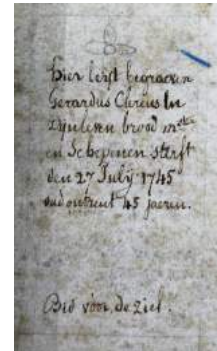 Hier leyt begraeven
Gerardus Clercus In
Zijn leven brood mstr
en Schepenen sterft
den 27 July 1745
oud ontrent 45 jaeren.
Bid voor de Ziel.